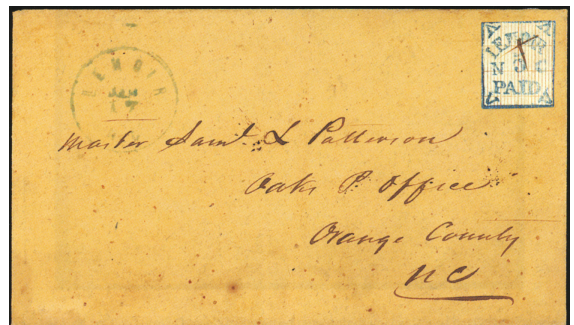 LENOIR
JAN
17
LENOIR
N 5 C
PAID
Master Saml. L Patterson
Oaks P. Office
Orange County
NC